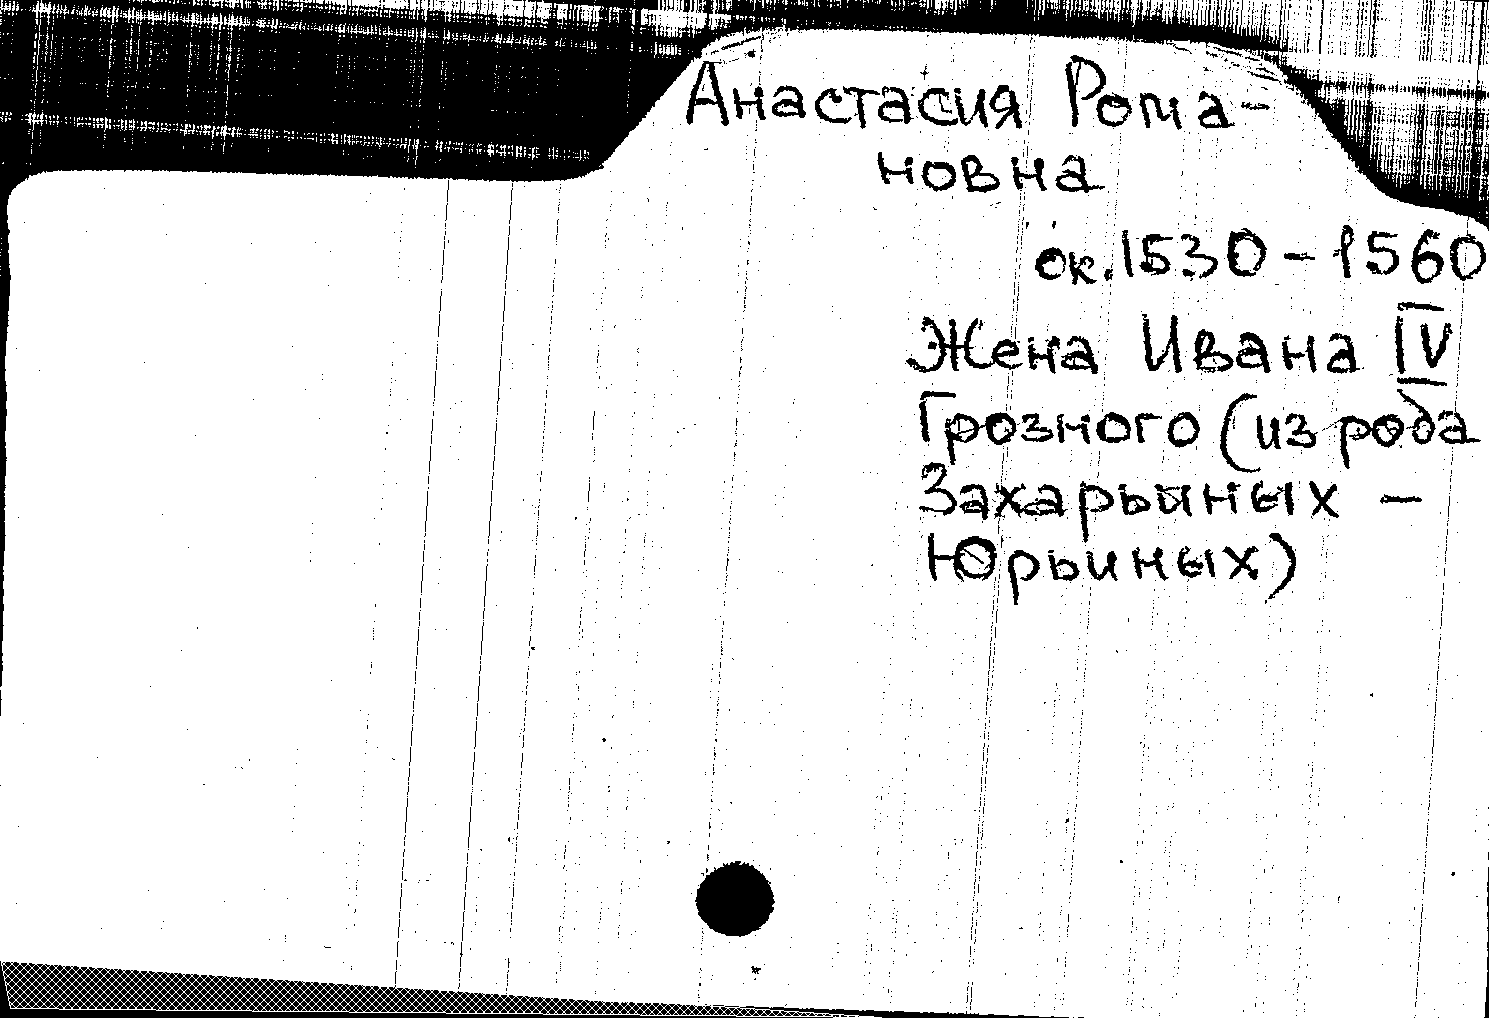 Анастасия Рома-
новна
ок. 1530 - 1560
Жена Ивана IV
Грозного (из рода
Захарьиных -
Юрьиных)